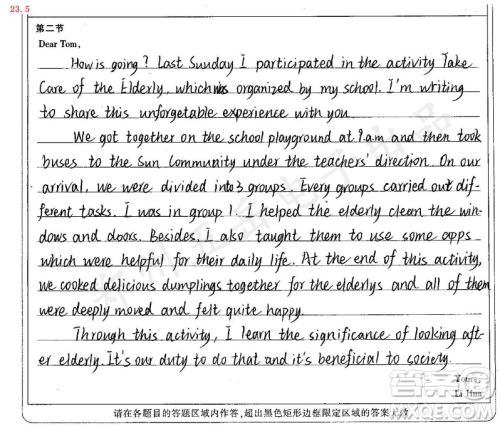 23.5
第二节
Dear Tom,
How is going? Last Sunday I participated in the activity Take
Care of the Elderly, which was organized by my school. I'm writing
to share this unforgetable experience with you.
We got together on the school playground at 9 am and then took
buses to the Sun Community under the teachers' direction. On our
arrival, we were divided into 3 groups. Every groups carried out dif-
ferent tasks. I was in group 1. I helped the elderly clean the win-
dows and doors. Besides, I also taught them to use some apps
which were helpful for their daily life. At the end of this activity,
we cooked delicious dumplings together for the elderlys and all of them
were deeply moved and felt quite happy.
Through this activity, I learn the significance of looking aft-
er elderly. It's our duty to do that and it's beneficial to society.
Yours,
Li Hua
请在各题目的答题区域内作答,超出黑色矩形边框限定区域的答案无效